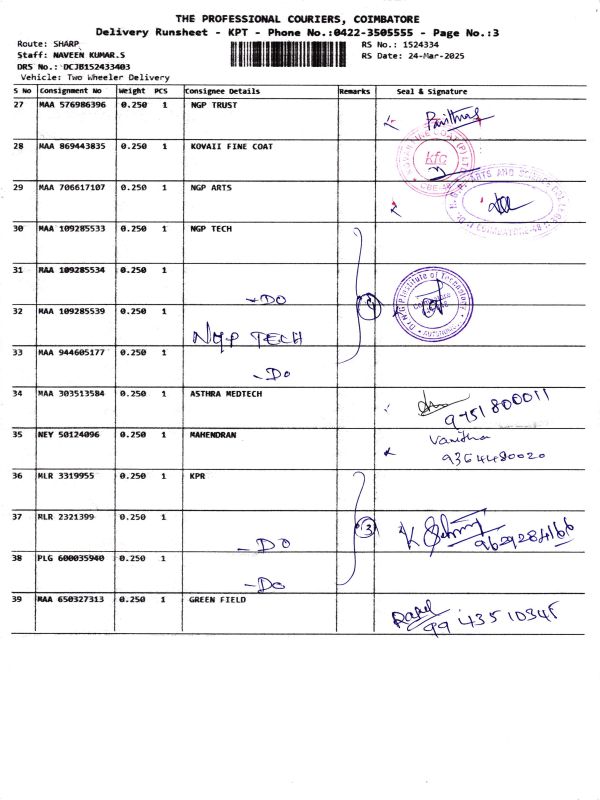 THE PROFESSIONAL COURIERS, COIMBATORE
Delivery Runsheet - KPT - Phone No.:0422-3505555 - Page No.:3
Route: SHARP RS No.: 1524334
Staff: NAVEEN KUMAR.S RS Date: 24-Mar-2025
DRS No.: DCJB152433403
Vehicle: Two Wheeler Delivery
S No Consignment No Weight PCS Consignee Details Remarks Seal & Signature
27 MAA 576986396 0.250 1 NGP TRUST
28 MAA 869443835 0.250 1 KOVAII FINE COAT
kfc
29 MAA 706617107 0.250 1 NGP ARTS
30 MAA 109285533 0.250 1 NGP TECH
31 MAA 109285534 0.250 1
- DO
32 MAA 109285539 0.250 1
NGP TECH
33 MAA 944605177 0.250 1
- DO
34 MAA 303513584 0.250 1 ASTHRA MEDTECH
9751800011
35 NEY 50124096 0.250 1 MAHENDRAN Vanitha
9364480020
36 MLR 3319955 0.250 1 KPR
37 MLR 2321399 0.250 1
- DO 3 9629284166
38 PLG 600035940 0.250 1
- DO
39 MAA 650327313 0.250 1 GREEN FIELD